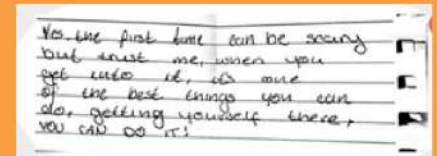 Yes. the first time can be scary
but trust me, when you
get into it, it's one
of the best things you can
do, getting yourself there,
YOU CAN DO IT!